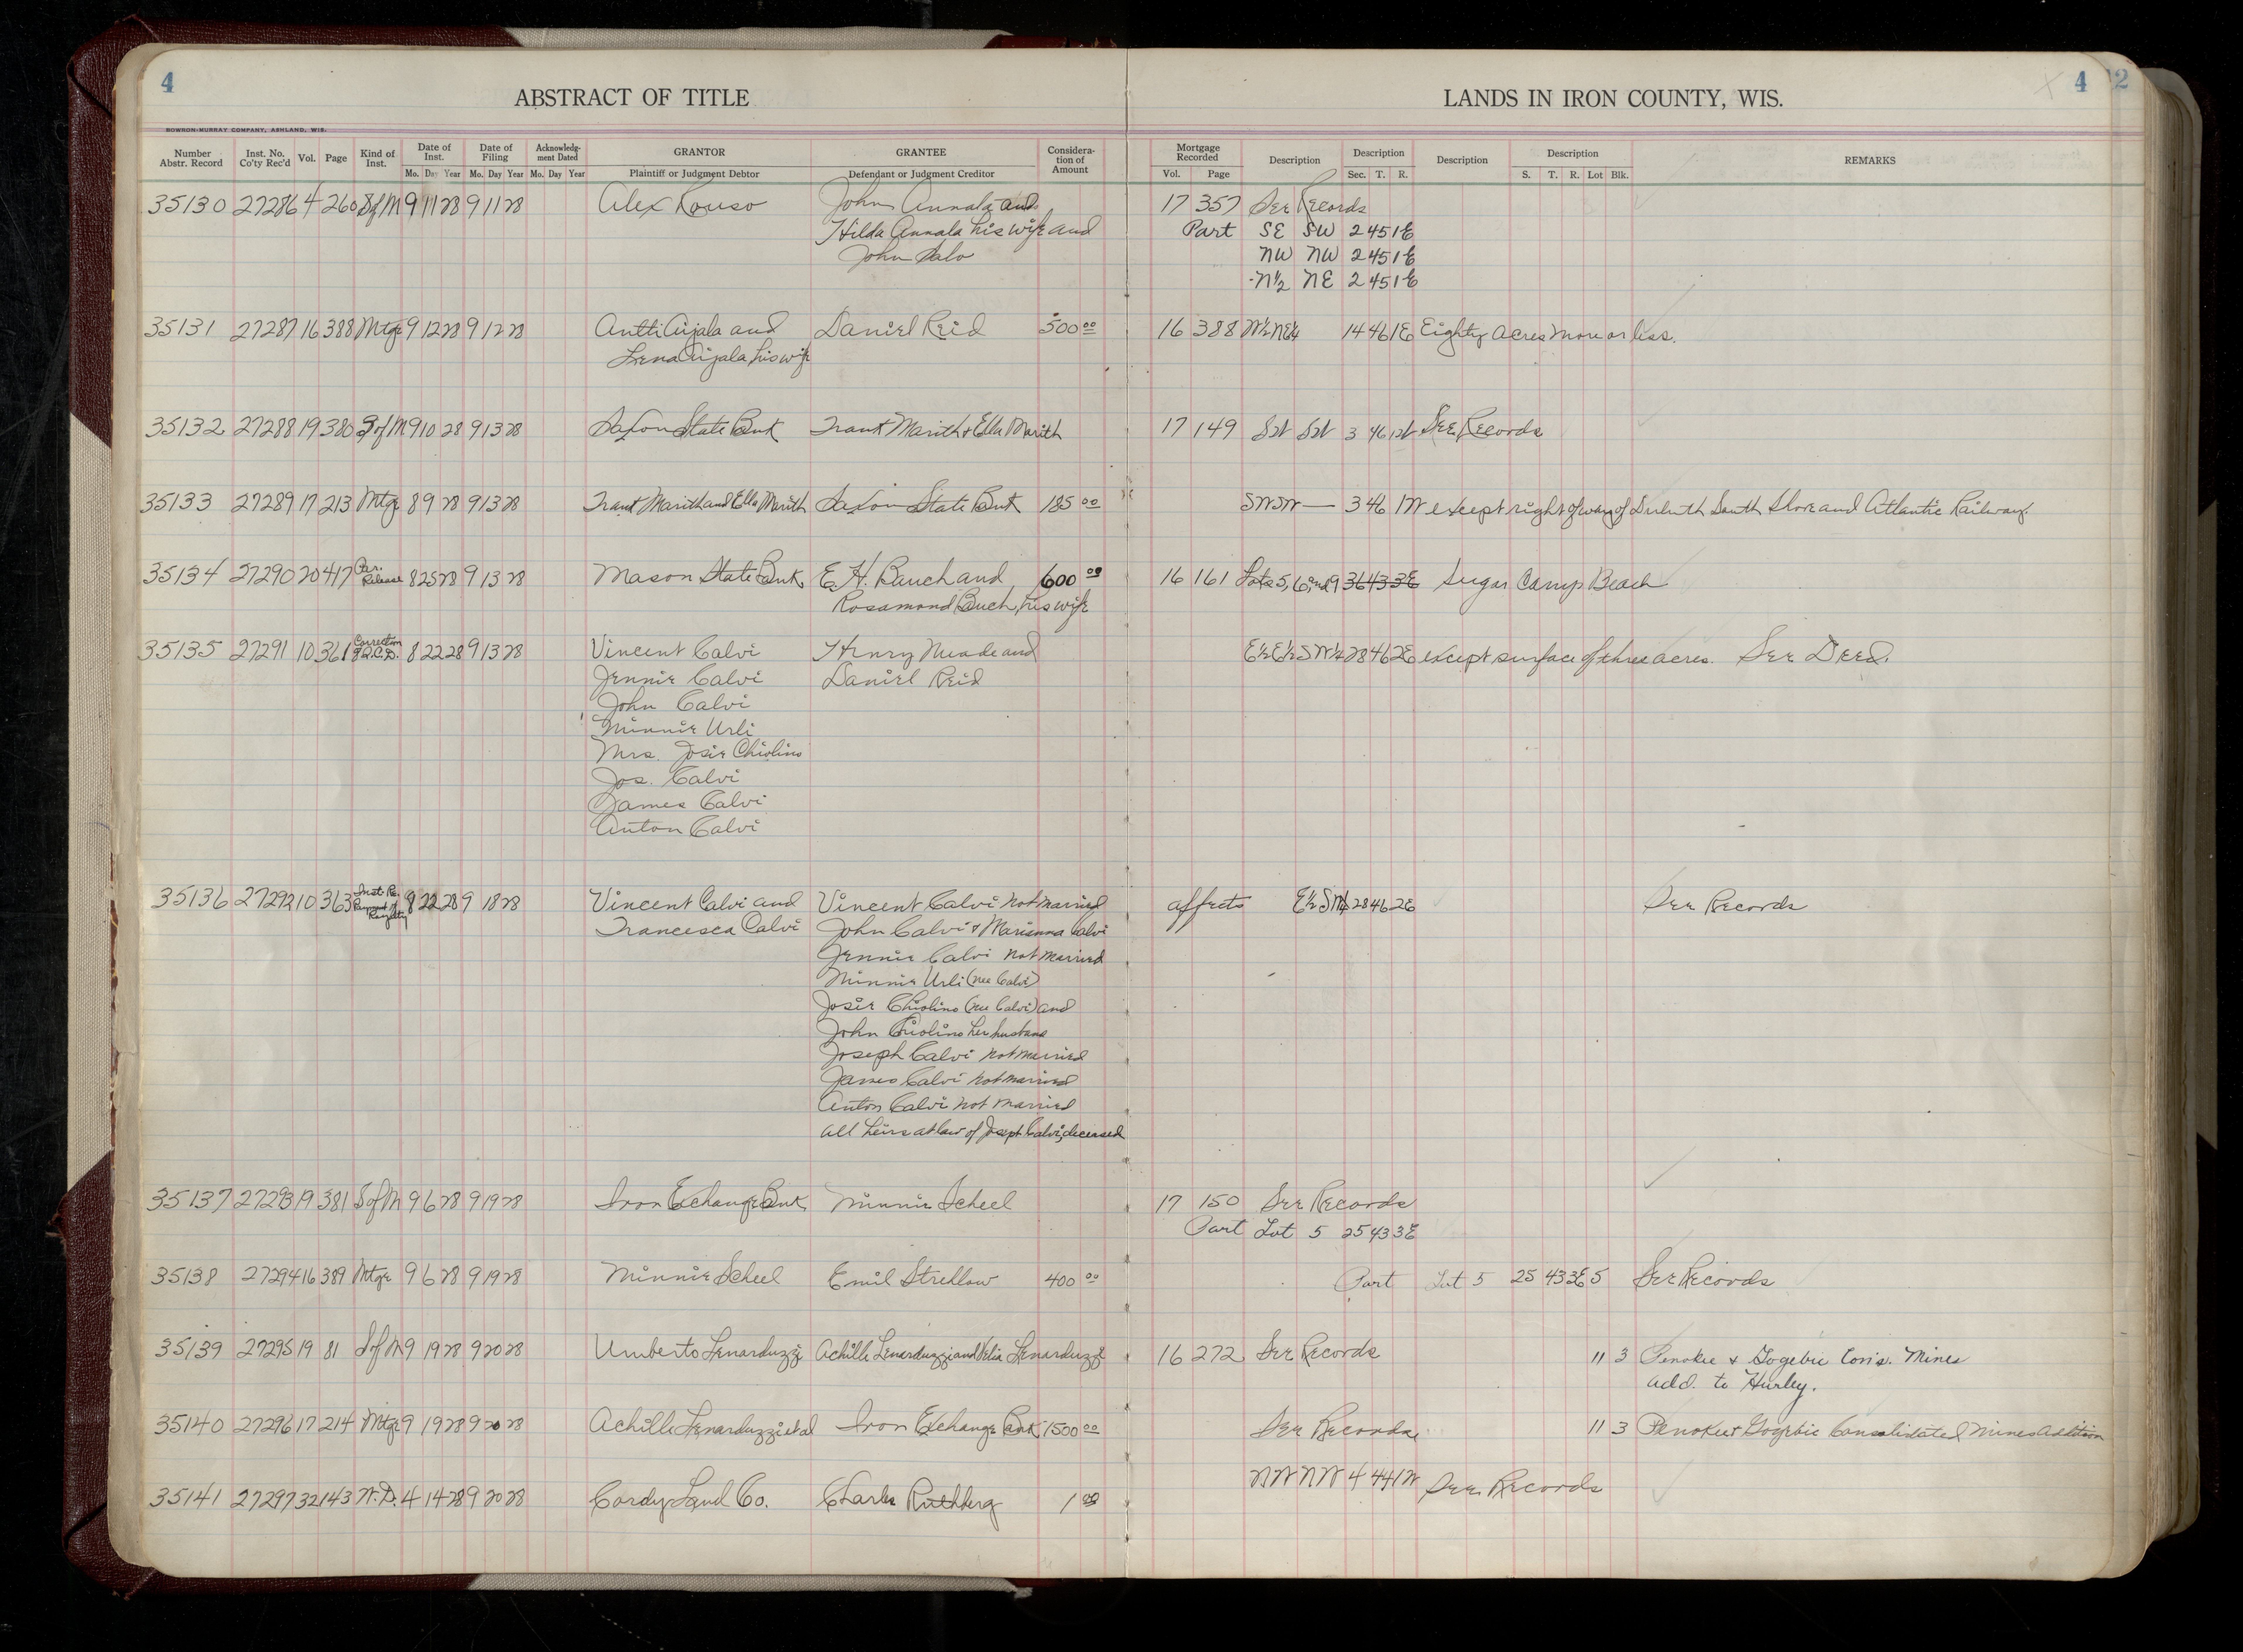 4
ABSTRACT OF TITLE
LANDS IN IRON COUNTY, WIS.
4
12
BOWRON-MURRAY COMPANY, ASHLAND, WIS.
Number Abstr. Record Inst. No. Co'ty Rec'd Vol. Page Kind of Inst. Date of Inst. Mo. Day Year Date of Filing Mo. Day Year Acknowledg-ment Dated Mo. Day Year GRANTOR Plaintiff or Judgment Debtor GRANTEE Defendant or Judgment Creditor Considera-tion of Amount Mortgage Recorded Vol. Page Description Description Sec. T. R. Description Description S. T. R. Lot Blk. REMARKS
35130 27286 4 260 S of M 9 11 28 9 11 28 Alex Kouso John Annala and 17 357 See Records
Hilda Annala his wife and Part SE SW 2 45 1E
John Salo NW NW 2 45 1E
N½ NE 2 45 1E
35131 27287 16 388 Mtge 9 12 28 9 12 28 Antti Aijala and Daniel Reid 500 00 16 388 W½NE¼ 14 46 1E Eighty acres more or less.
Lena Aijala his wife
35132 27288 19 380 S of M 9 10 28 9 13 28 Saxon State Bank Frank Marith & Ella Marith 17 149 SW SW 3 46 1W See Records
35133 27289 17 213 Mtge 8 9 28 9 13 28 Frank Marith and Ella Marith Saxon State Bank 185 00 SW SW — 3 46 1W except right of way of Duluth South Shore and Atlantic Railway
35134 27290 20 417 Par. Release 8 25 28 9 13 28 Mason State Bank E. H. Bauch and 600 00 16 161 Lots 5, 6, and 9 36 43 3E Sugar Camp Beach
Rosamond Bauch, his wife
35135 27291 10 361 Correction Q.C.D. 8 22 28 9 13 28 Vincent Calvi Henry Meade and E½E½SW¼ 28 46 2E except surface of three acres. See Deed.
Jennie Calvi Daniel Reid
John Calvi
Minnie Urli
Mrs. Josie Chiolino
Jos. Calvi
James Calvi
Anton Calvi
35136 27292 10 363 Inst. Re. Payment of Royalty 8 22 28 9 18 28 Vincent Calvi and Vincent Calvi not married affects E½SW¼ 28 46 2E See Records
Francesca Calvi John Calvi & Marianna Calvi
Jennie Calvi not married
Minnie Urli (nee Calvi)
Josie Chiolino (nee Calvi) and
John Chiolino her husband
Joseph Calvi not married
James Calvi not married
Anton Calvi not married
all heirs at law of Joseph Calvi, deceased
35137 27293 19 381 S of M 9 6 28 9 19 28 Iron Exchange Bank Minnie Scheel 17 150 See Records
Part Lot 5 25 43 3E
35138 27294 16 389 Mtge 9 6 28 9 19 28 Minnie Scheel Emil Strellow 400 00 Part Lot 5 25 43 3E 5 See Records
35139 27295 19 81 S of M 9 19 28 9 20 28 Umberto Lenarduzzi Achille Lenarduzzi and Delia Lenarduzzi 16 272 See Records 11 3 Penokee & Gogebic Cons. Mines
add. to Hurley.
35140 27296 17 214 Mtge 9 19 28 9 20 28 Achille Lenarduzzi et al Iron Exchange Bank 1500 00 See Records 11 3 Penokee & Gogebic Consolidated Mines Addition
35141 27297 32 143 W.D. 4 14 28 9 20 28 Cordy Land Co. Charles Ruthberg 1 00 NW NW 4 44 1W See Records